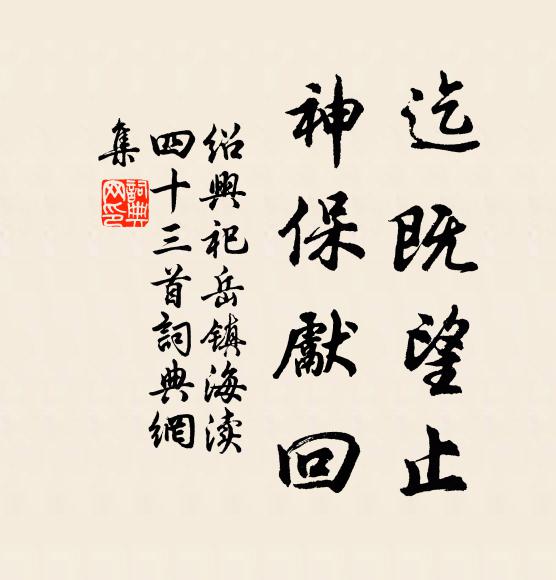 迄既望止
神保獻回
绍興祀岳镇海渎
四十三首詞典網
集
詞典
网印